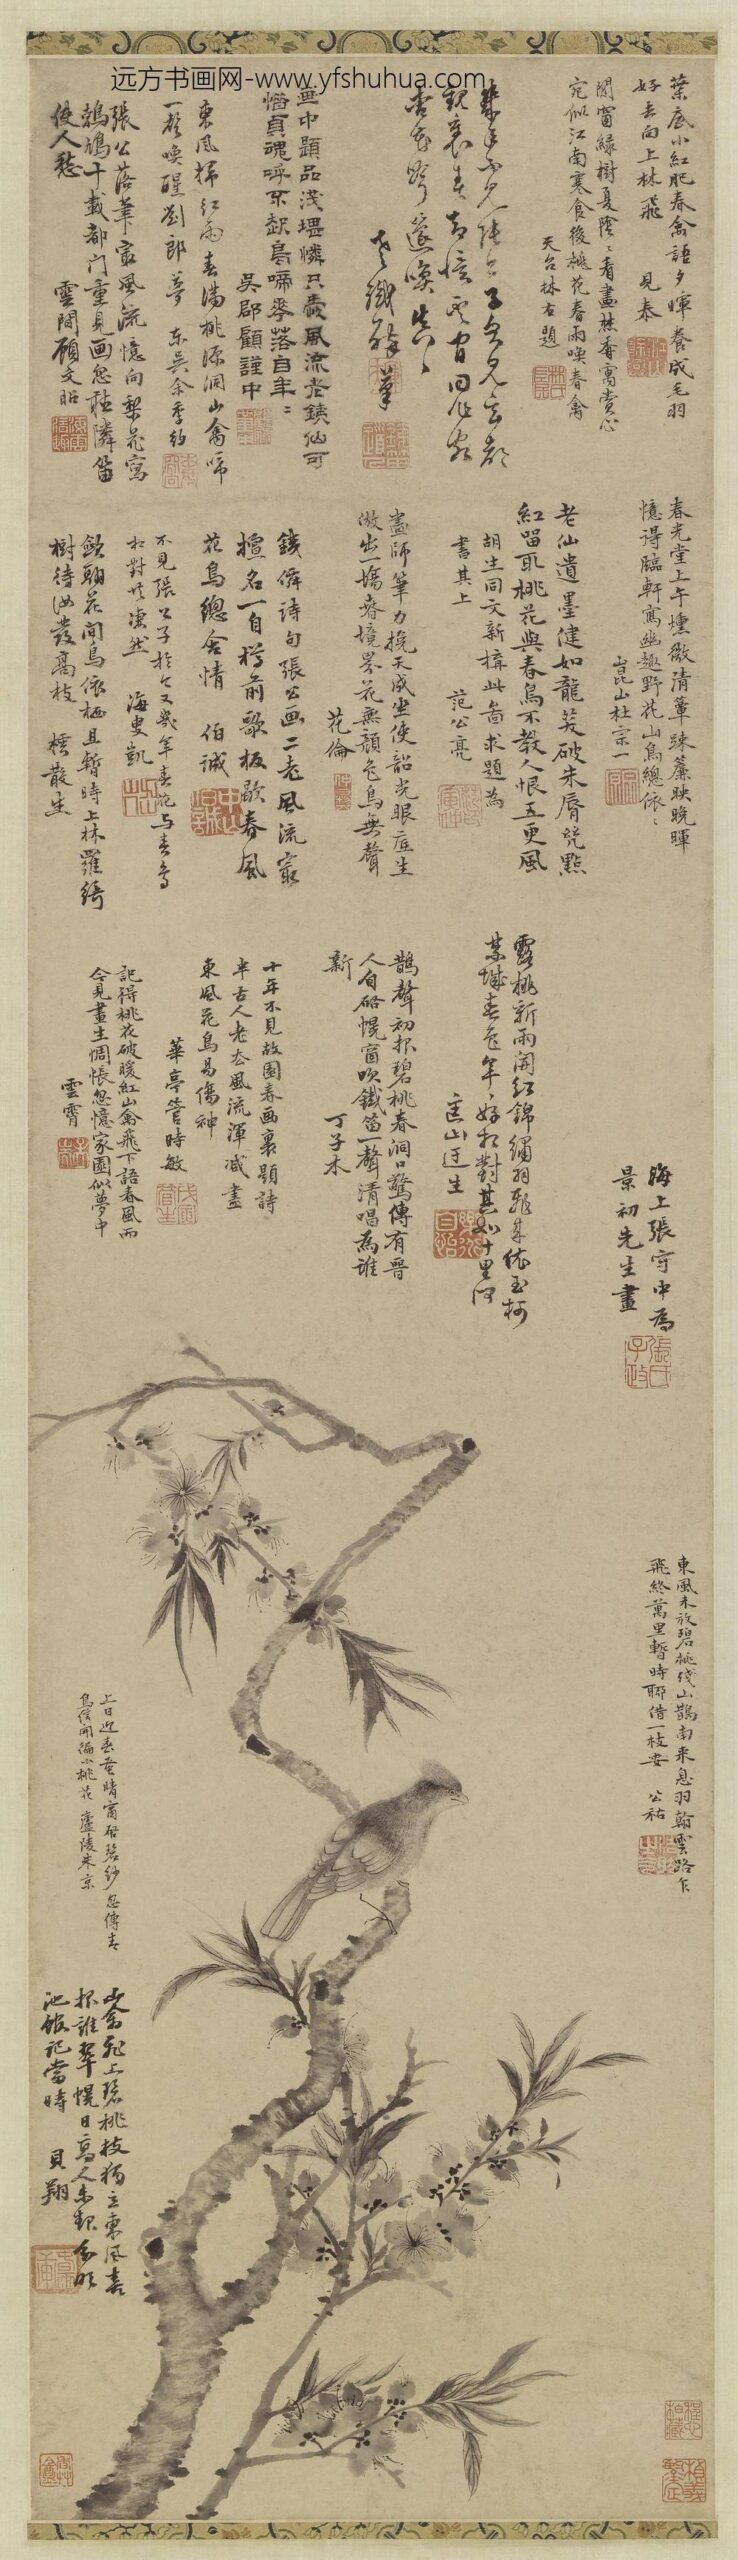 远方书画网-www.yfshuhua.com
葉底小紅肥春禽語夕暉養成毛羽
好去向上林飛 見泰
閑窗綠樹夏陰〻看畫焚香寓賞心
宛似江南寒食後桃花春雨喚春禽
天台林右題
老鐵
畫中題品淺堪憐只費風流老鐵仙可
惱貞魂呼不起鳥啼花落自年〻
吳郡顧謹中
東風掃紅雨春滿桃源洞山禽啼
一聲喚醒劉郎夢 東吳余季約
張公落筆最風流憶向梨花寫
鶺鴒十載都門重見画忽聽隣笛
使人愁 雲間顧文昭
春光堂上午燻微清簟踈簾映晚暉
憶得臨軒寫幽趣野花山鳥總依〻
崑山杜宗一
老仙遺墨健如龍芙破朱脣點
紅留取桃花與春鳥不教人恨五更風
胡生同文新搆此啚求題為
書其上 范公亮
畫師筆力挽天成坐使韶光眼底生
做出一塲春境界花無顏色鳥無聲
花倫
鐵仙詩句張公画二老風流最
擅名一自樽前歌板歇春風
花鳥總含情 伯誠
不見張公子於今又幾年春花与春鳥
相對共凄然 海叟凱
歛翮花間鳥依棲且暫時上林羅綺
樹待汝發高枝 樗散生
露桃新雨開紅錦繡羽飛來依玉柯
匡山迂生
鵲聲初報碧桃春洞口驚傳有晋
人自啟幌窗吹鐵笛一聲清唱為誰
新 丁子木
十年不見故園春画裏題詩
半古人老去風流渾減盡
東風花鳥易傷神
華亭管時敏
記得桃花破暖紅山禽飛下語春風而
今見畫生惆悵忽憶家園似夢中
雲霄
海上張守中為
景初先生畫
張氏子政
東風未放碧桃殘山鵲南來息羽翰雲路乍
飛終萬里暫時聊借一枝安 公祐
上日迎春喜晴窗啟碧紗忽傳青
鳥信開徧小桃花 廬陵朱京
山禽飛上碧桃枝獨立東風喜
報誰翠幌日高人未起分明
池館記當時 貝翱